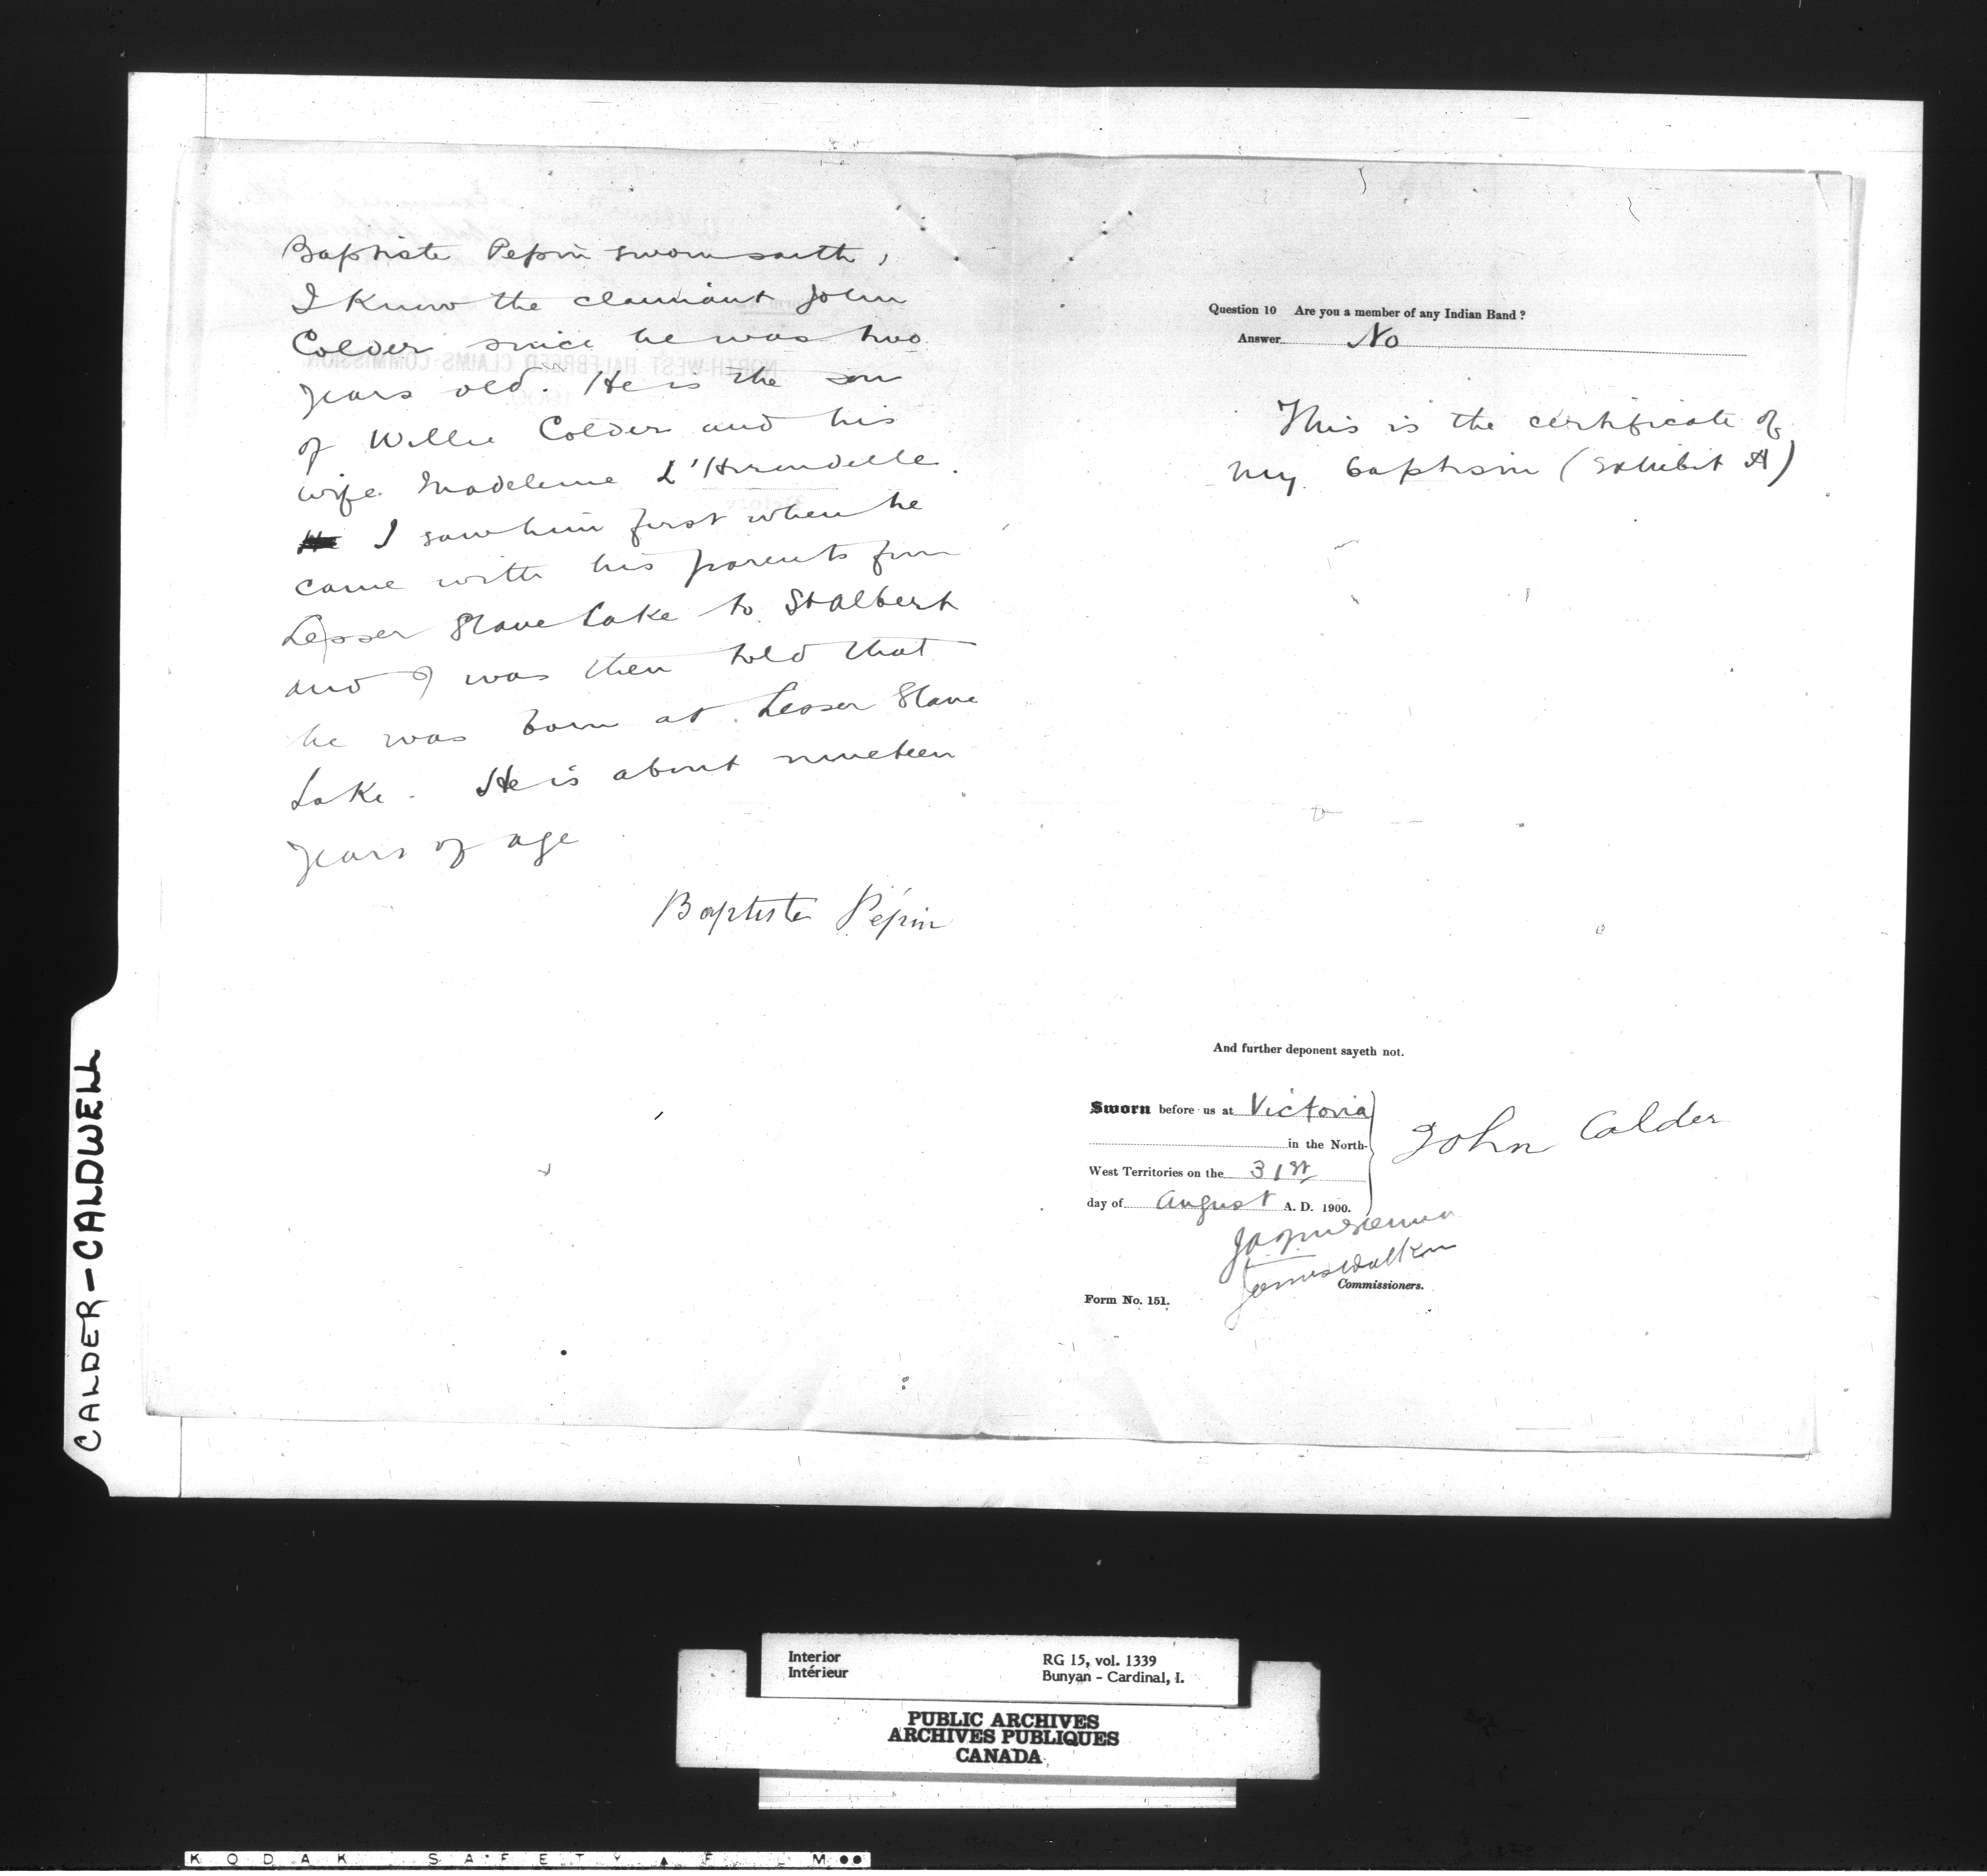 Baptiste Pepin sworn saith,
I know the claimant John
Calder since he was two
years old. He is the son
of Willie Calder and his
wife Madeleine L'Hirendelle.
I saw him first when he
came with his parents from
Lesser Slave Lake to St Albert
and I was then told that
he was born at Lesser Slave
Lake. He is about nineteen
years of age
Baptiste Pépin
Question 10 Are you a member of any Indian Band ?
Answer No
This is the certificate of
my baptism (Exhibit A)
And further deponent sayeth not.
Sworn before us at Victoria
in the North-
West Territories on the 31st
day of August A. D. 1900.
John Calder
James Walker
Commissioners.
Form No. 151.
CALDER-CALDWELL
Interior
Intérieur
RG 15, vol. 1339
Bunyan - Cardinal, I.
PUBLIC ARCHIVES
ARCHIVES PUBLIQUES
CANADA
KODAK SAFETY F LM